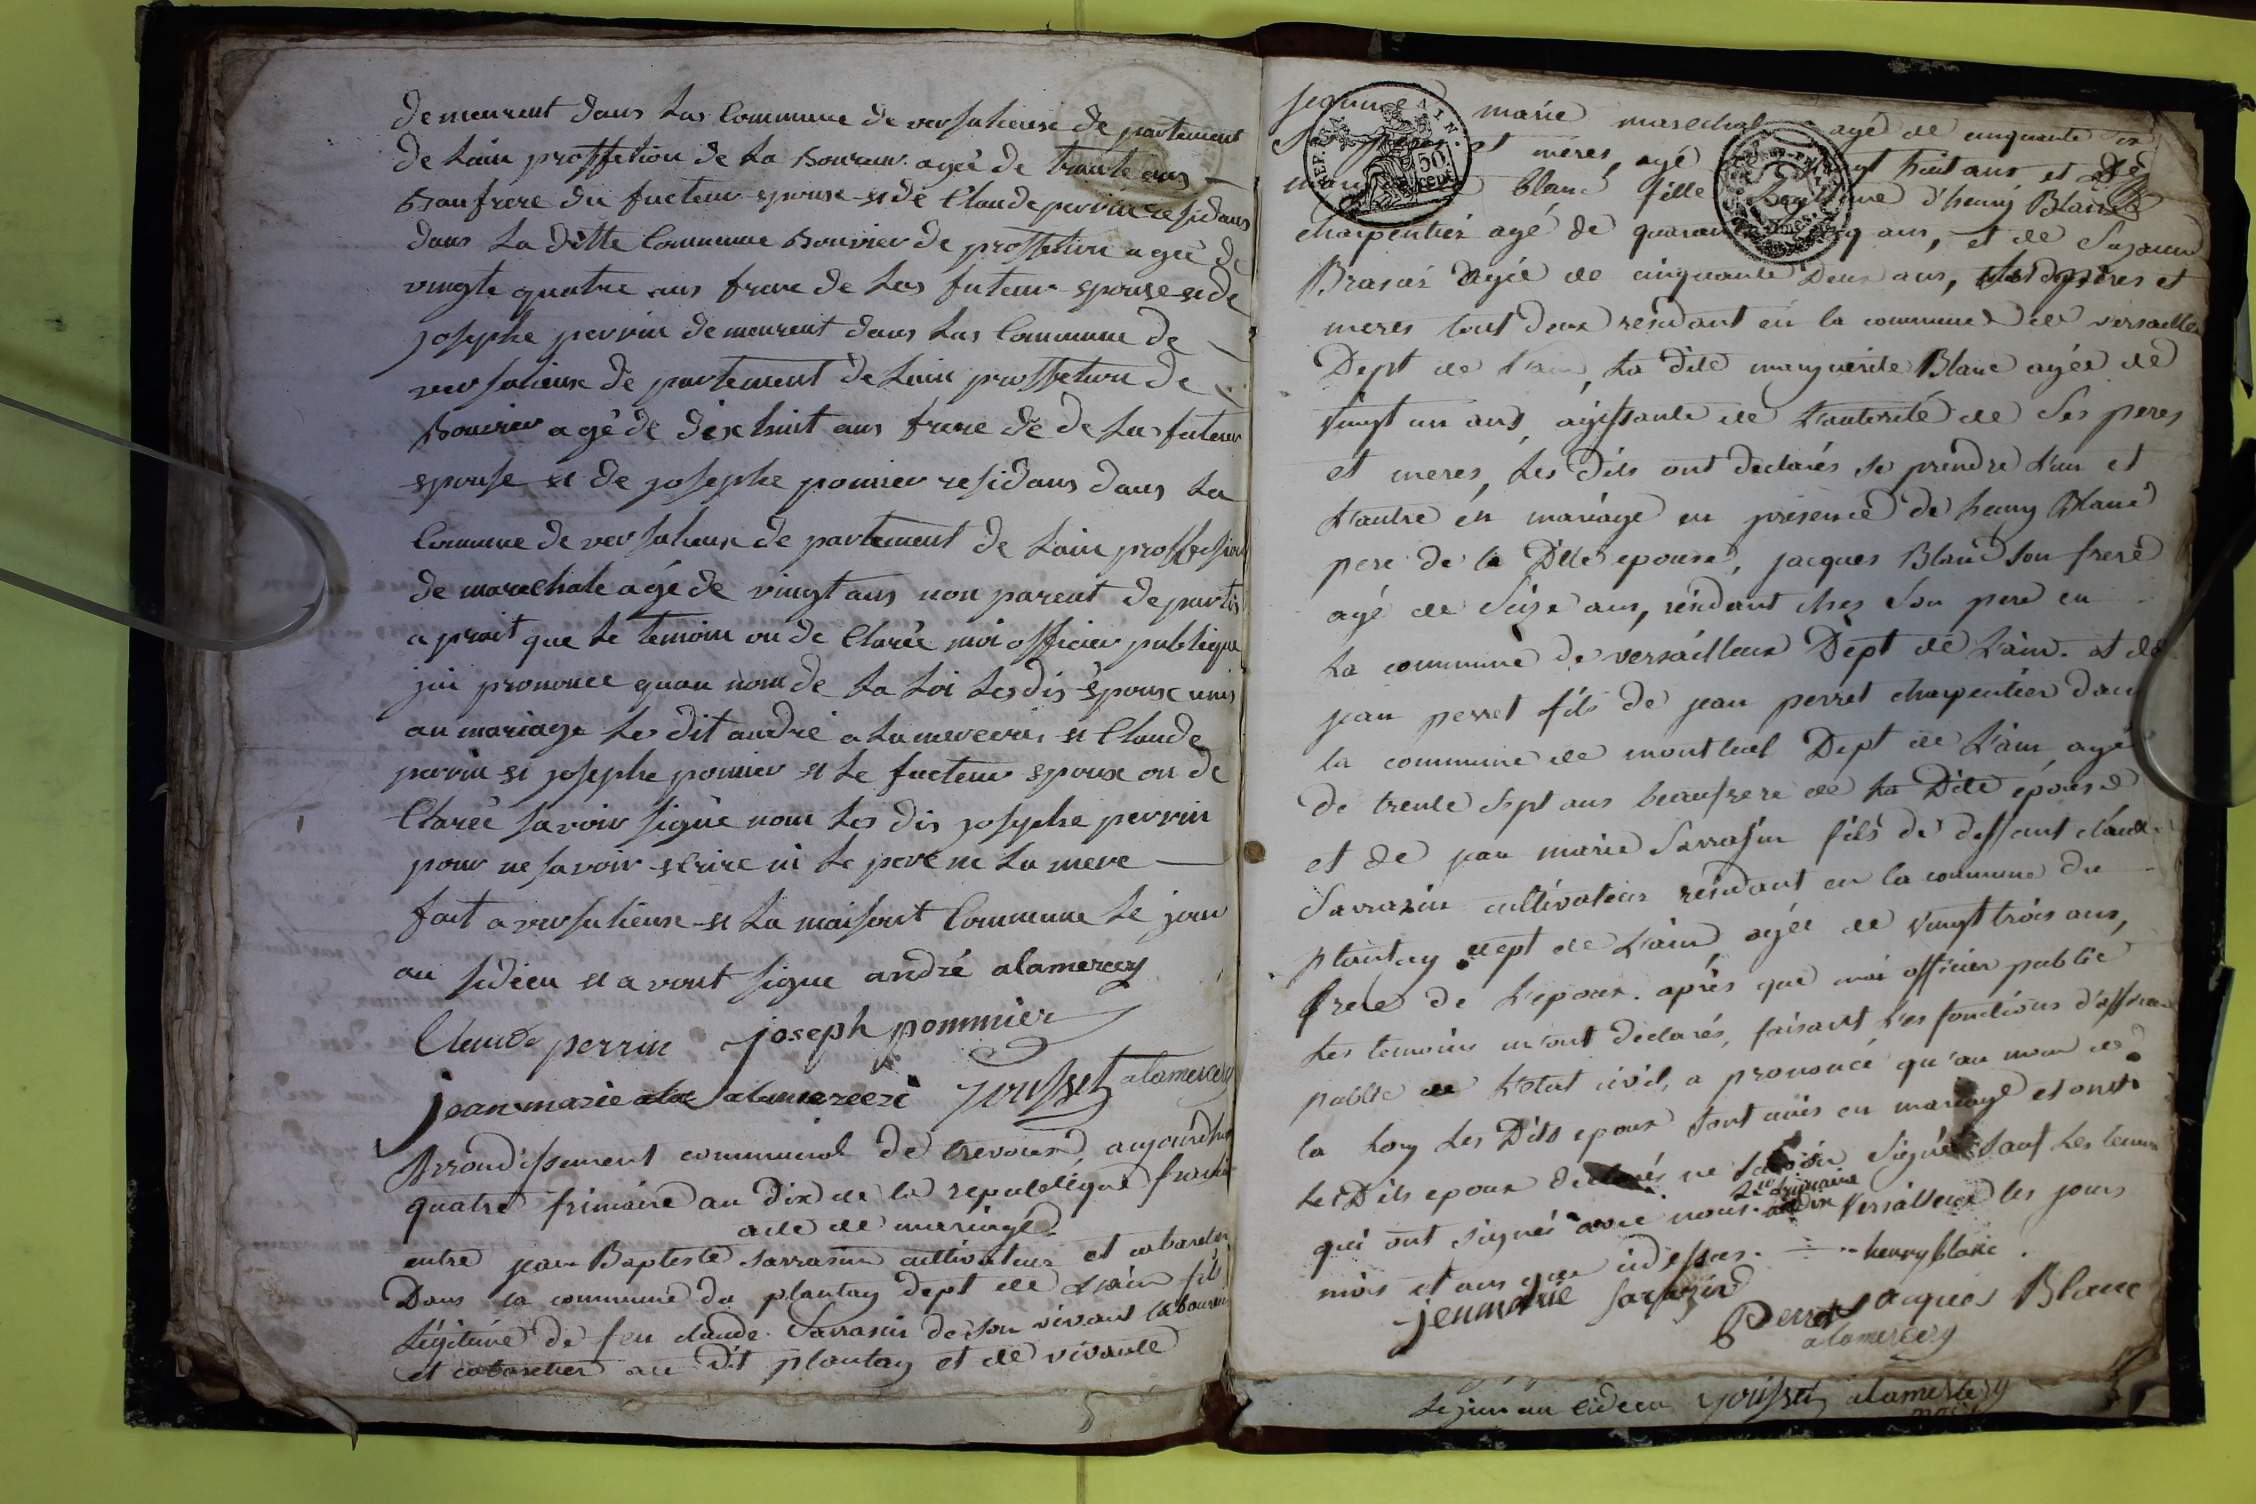 demeurent dans Las Commune de versalieuse de partement
de Lain proffetion de La Boureur agée de trante ans
Baufrere du futeur epouse et de Claude perrin residans
dans La ditte Commune Bouvier de proffetion agée de
vingte quatre ans frere de Las futeur epouse et de
josephe perrin demeurent dans Las Commune de
versalieuse de partement de Lain proffetion de
Bouvier agé de dixhuit ans frere de de Las futeur
epouse et de josephe pomier residans dans La
Commune de versalieux de partement de Lain proffession
de marechale agé de vingt ans non parent de partis
a prait que Le temoin on de Claréé moi officier publique
jai prononce quau nom de La Loi Lesdis épouse unis
au mariage Les dit andré a Lamercerie et Claude
perrin et josephe pomier et Le futeur epoux on de
Claréé savoir signé nom Les dis josephe perrin
pour ne savoir ecrire ni Le pere ne La mere
fait a versalieuse et La maisont Commune Le jour
au sidieu et avont signe andré alamercery
Claude perrin joseph pommier
jean marie alamercéri jousset alamercery
Arrondissement communal de trevoux aujourdhui
quatre frimaire an dix de la republique francai
acte de mariage
entre jean Baptiste sarrasin cultivateur et cabaretier
Dans la commune du plantay dept de L'ain fils
Légitime de feu claude Sarrasin de son vivant laboureur
et cabaretier au dit plantay et de vivante
jeanne marie marechal agé de cinquante six
et mères, agé vingt huit ans et de
blanc fille legitime d'henry Blanc
charpentier agé de quarante cinq ans, et de Suzanne
Brasier agée de cinquante deux ans, pères et
meres tout deux résidant en la commune de versailleux
Dept de L'ain, La dite marguerite Blanc agée de
vingt un ans, agissante de L'autorité de ses peres
et meres, Les dits ont declarés se prendre L'un et
L'autre en mariage en présence de henry Blanc
pere de la Dite epouse, jacques Blanc son frere
agé de seize ans, résidant ches son pere en
La commune de versailleux Dépt de L'ain. et de
jean perret fils de jean perret charpentier dans
la commune de montluel Dept de L'ain, agé
de trente sept ans beaufrere de La Dite épouse
et de jean marie Sarrasin fils de deffunt claude
Sarrazin cultivateur résidant en la commune du
plantay dept de L'ain agée de vingt trois ans,
frere de L'epoux. après que moi officier public
Les temoins m'ont declarés, faisant Les fonctions d'officier
public de L'état civil, a prononcé qu'au nom de
la Loy Les Dits epoux sont unis en mariage et ont
Les Dits epoux declarés ne savoir signér sauf Les temoins
qui ont signés avec nous. Versailleux les jours
mois et ans que cidessus. henry blanc
jeanmarie sarrasin Perret jacques Blanc
alamercery
Le jour au cideçu jousset alamercery